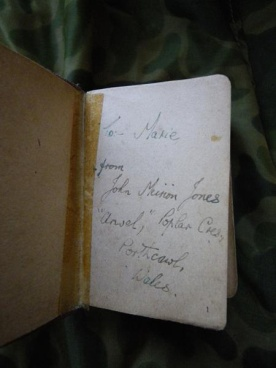 To- Marie
from
John Mirion Jones
"Ansel", Poplar Cres,
Porthcawl,
Wales.